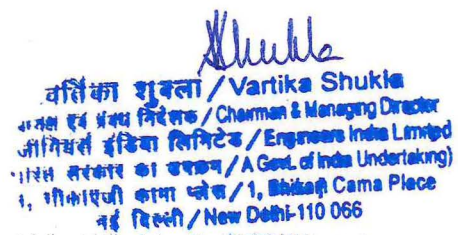 Shukla
वर्तिका शुक्ला / Vartika Shukla
अध्यक्ष एवं प्रबंध निदेशक / Chairman & Managing Director
इंडिया लिमिटेड / Engineers India Limited
भारत सरकार का उपक्रम / A Govt. of India Undertaking)
1, भीकाएजी कामा प्लेस / 1, Bhikaji Cama Place
नई दिल्ली / New Delhi-110 066